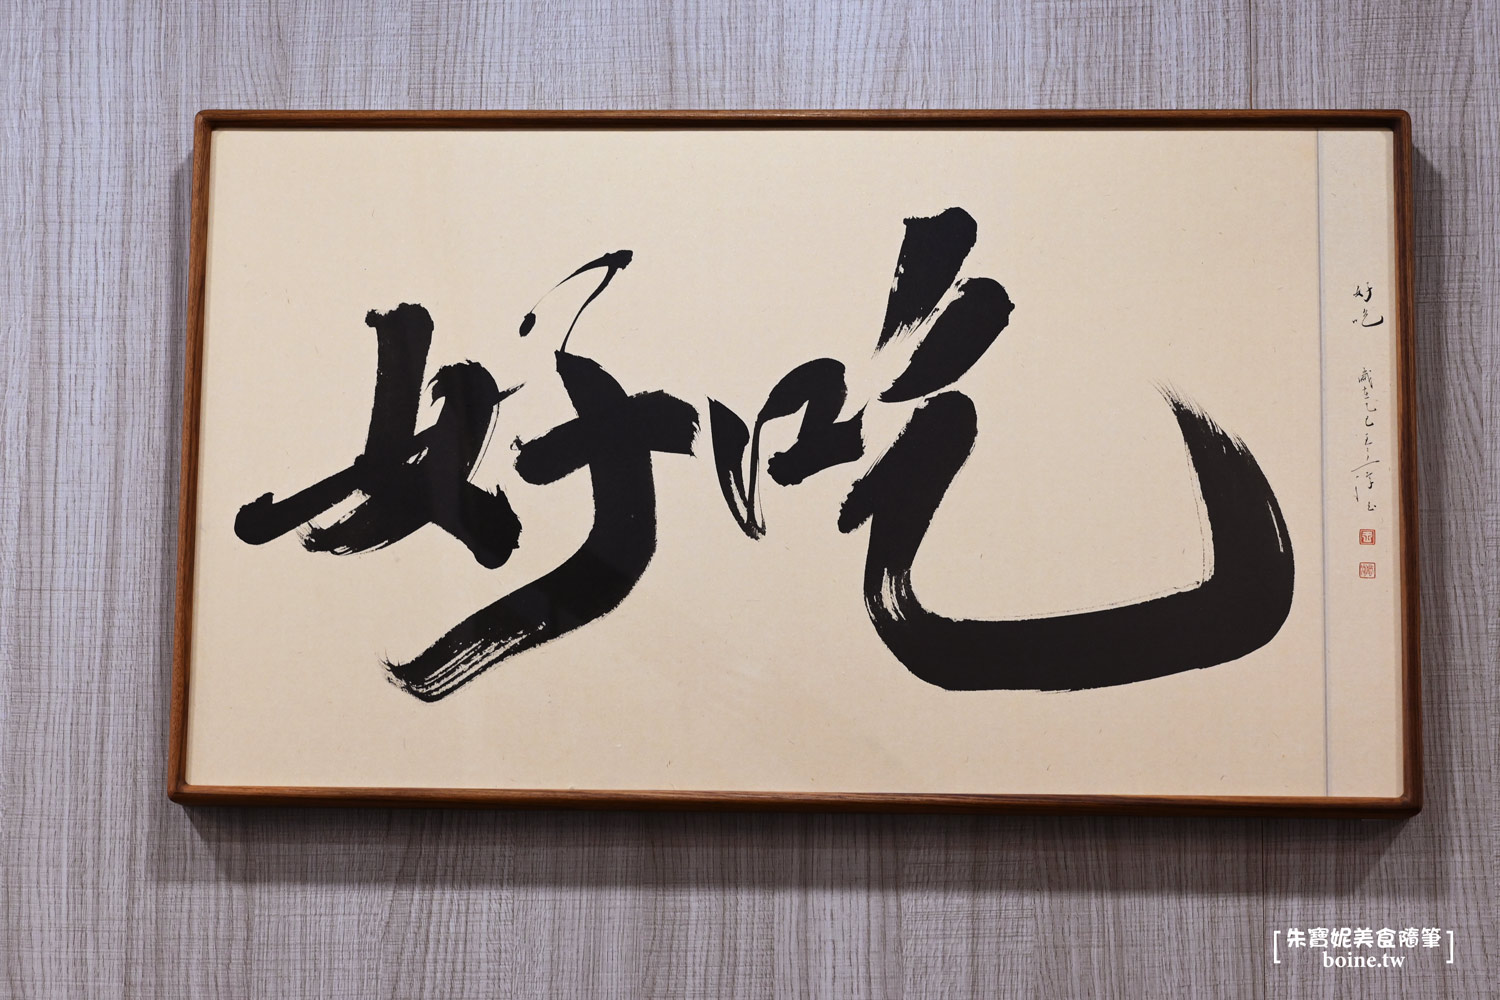 好吃
好吃
朱寶妮美食隨筆
boine.tw